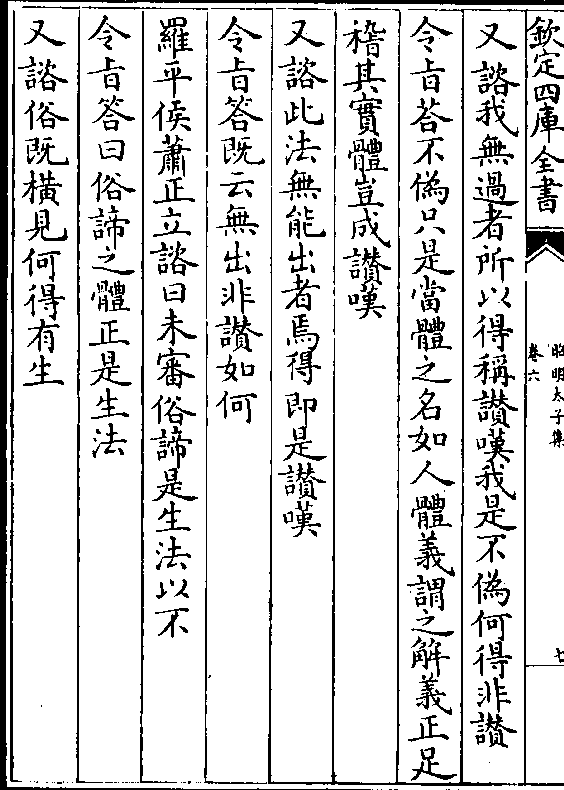 欽定四庫全書
昭明太子集
卷六
七
又諮我無過者所以得稱讃嘆我是不偽何得非讃
令旨荅不偽只是當體之名如人體義謂之解義正足
稽其實體豈成讃嘆
又諮此法無能出者焉得即是讃嘆
令旨答既云無出非讃如何
羅平侯蕭正立諮曰未審俗諦是生法以不
令旨答曰俗諦之體正是生法
又諮俗既橫見何得有生